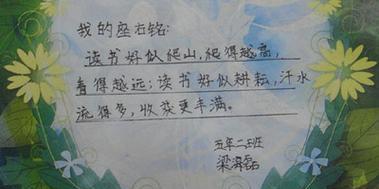 我的座右铭:
读书好似爬山,爬得越高,
看得越远;读书好似耕耘,汗水
流得多,收获更丰满。
五年二班
梁海磊